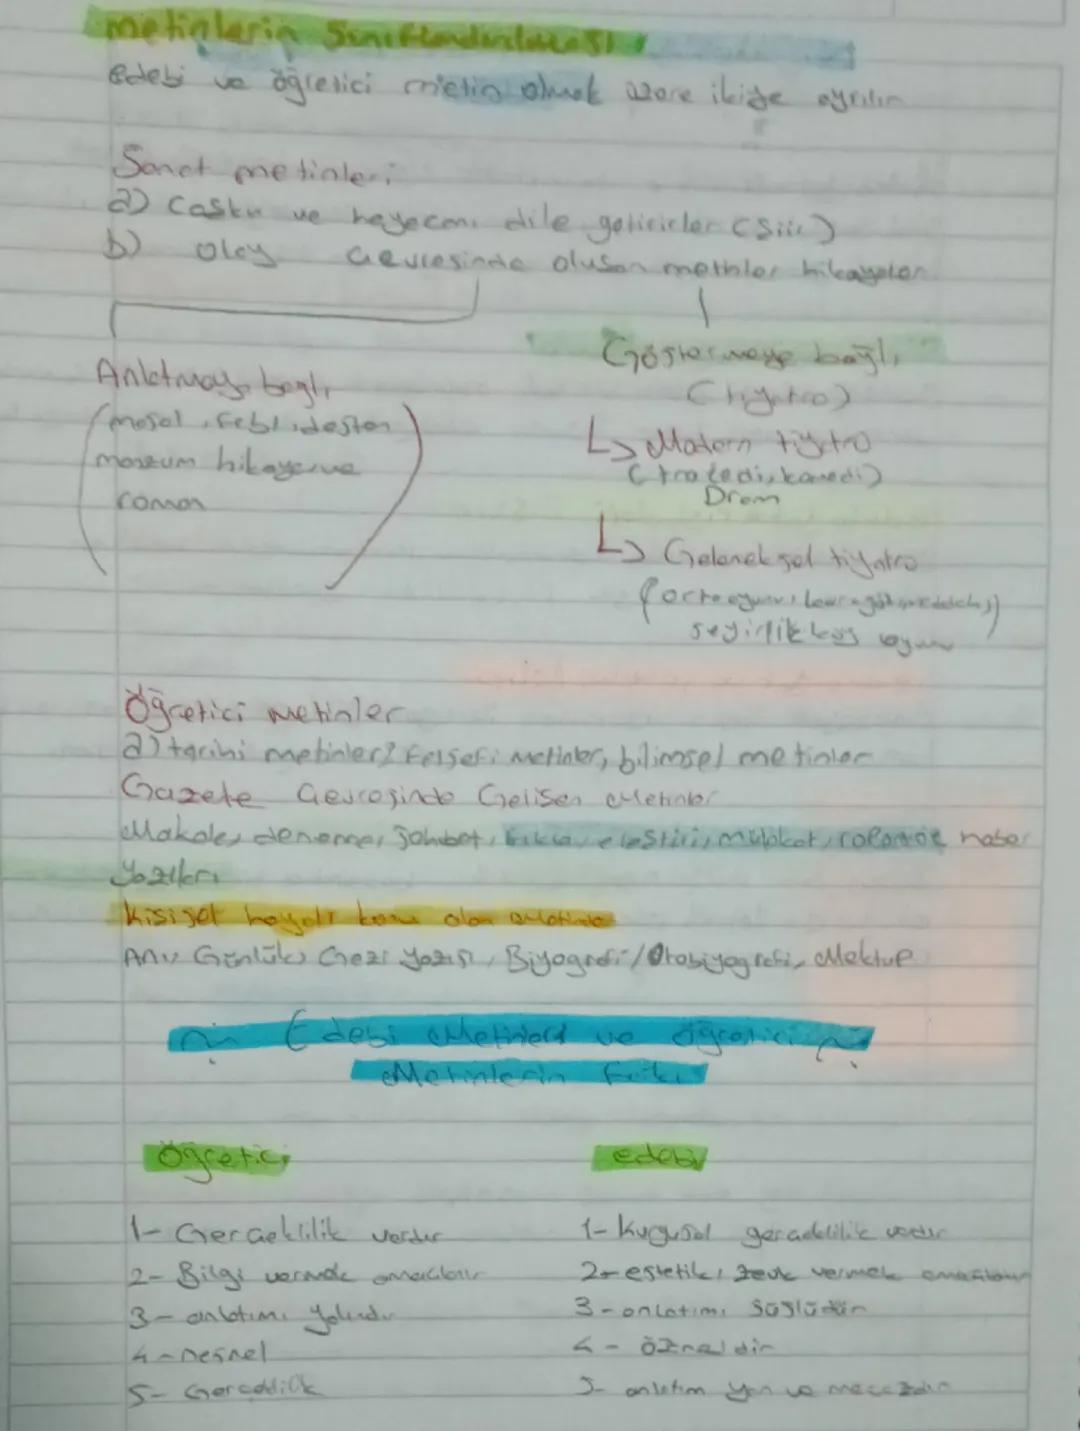 metinlerin Sınıflandırılması
edebi ve öğretici metin olmak üzere ikiye ayrılır
Sanat metinleri
a) Coşku ve heyecanı dile getirirler (Şiir)
b) olay çevresinde oluşan metinler hikayeler
Anlatmaya bağlı
(masal, fabl, destan
manzum hikaye ve
roman
Göstermeye bağlı
(tiyatro)
↳ Modern tiyatro
(trajedi, komedi)
Dram
↳ Geleneksel tiyatro
(orta oyunu, karagöz, meddah,)
seyirlik köy oyunu
Öğretici metinler
a) tarihi metinler, Felsefi metinler, bilimsel metinler
Gazete Çevresinde Gelişen Metinler
Makale, deneme, Sohbet, fıkra, eleştiri, mülakat, röportaj haber
Yazıları
Kişisel hayatı konu alan metinler
Anı, Günlük, Gezi Yazısı, Biyografi/Otobiyografi, Mektup
Edebi Metinlerl ve öğretici
Metinlerin Farkı
Öğretici
1- Gerçeklilik vardır
2- Bilgi vermek amaçlanır
3- anlatımı yalındır
4- nesnel
5- Gerçeklik
edebi
1- Kurgusal gerçeklilik vardır
2- estetik, zevk vermek amaçlanır
3- anlatımı süslüdür
4- özneldir
5- anlatım yan ve mecazdır